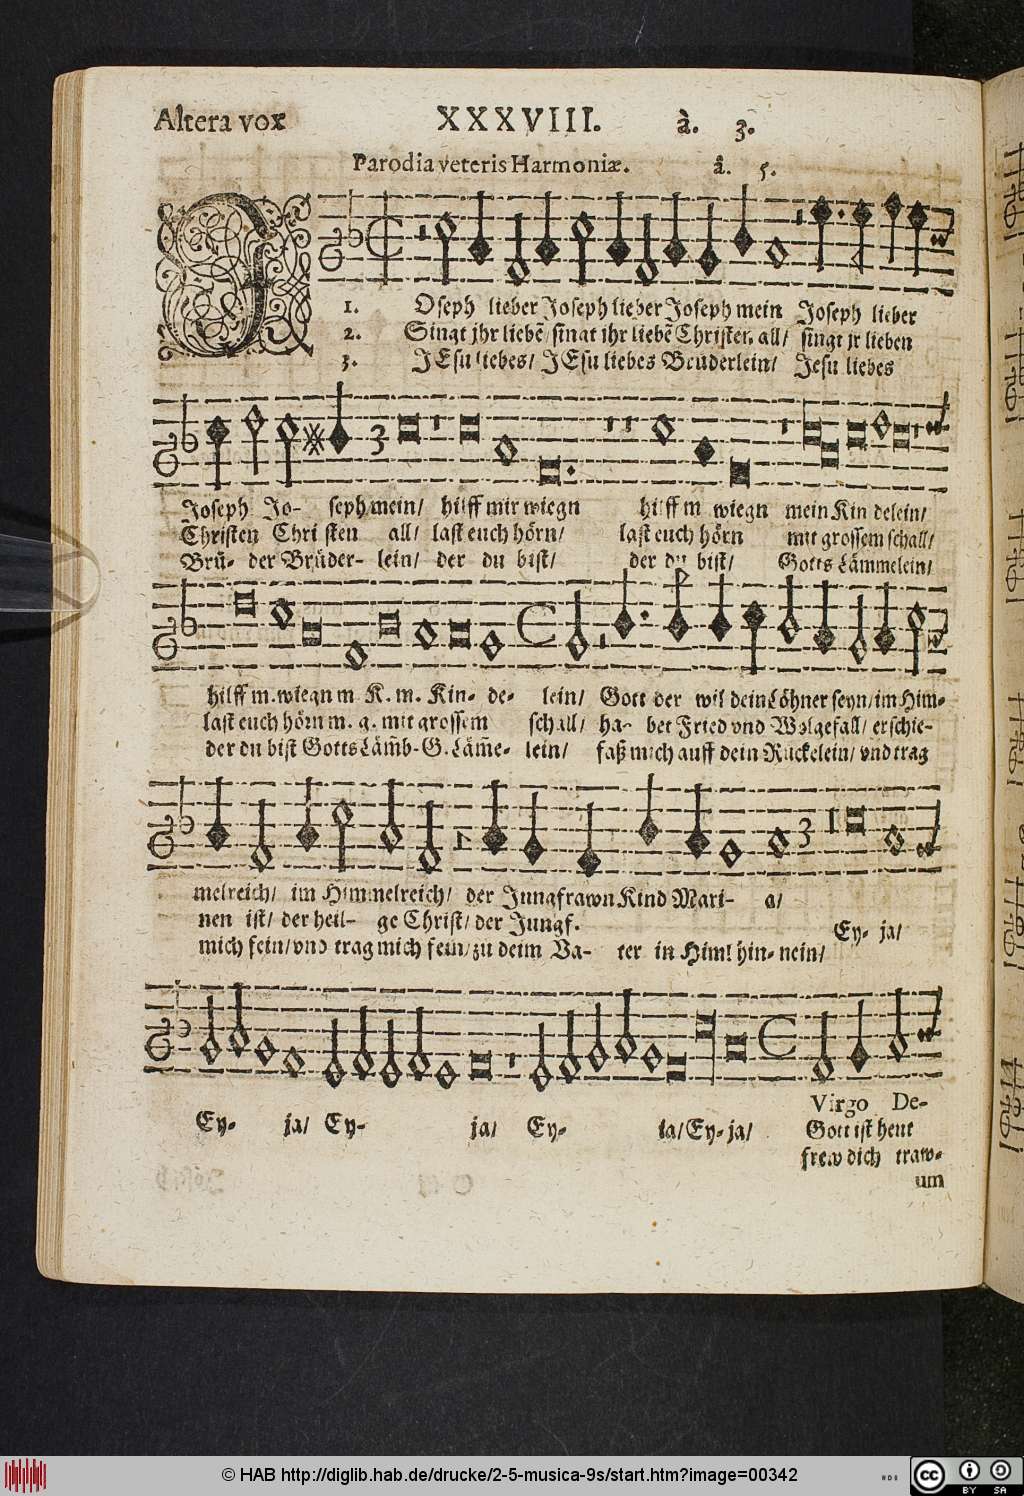 Altera vox XXXVIII. à. 3.
Parodia veteris Harmoniæ. å. 5.
1. Oseph lieber Joseph lieber Joseph mein Joseph lieber
2. Singt jhr liebē/ singt ihr liebē Christen all/ singt jr lieben
3. JEsu liebes/ JEsu liebes Brüderlein/ Jesu liebes
Joseph Jo- seph mein/ hilff mir wiegn hilff m wiegn mein Kin delein/
Christen Chri sten all/ last euch hörn/ last euch hörn mit grossem schall/
Brü- der Brüder- lein/ der du bist/ der du bist/ Gotts Lämmelein/
hilff m. wiegn m K. m. Kin- de- lein/ Gott der wil dein Löhner seyn/ im Him-
last euch hörn m. g. mit grossem schall/ ha- bet Fried vnd Wolgefall/ erschie-
der du bist Gotts Läm̄b- G. Läm̄e- lein/ faß mich auff dein Rückelein/ vnd trag
melreich/ im Himmelreich/ der Jungfrawn Kind Mari- a/
nen ist/ der heil- ge Christ/ der Jungf.
Ey- ja/
mich fein/ vnd trag mich fein/ zu deim Va- ter in Himl hin- nein/
Virgo De-
Ey- ja/ Ey- ja/ Ey- ia/ Ey- ja/ Gott ist heut
frew dich traw-
um
© HAB http://diglib.hab.de/drucke/2-5-musica-9s/start.htm?image=00342
cc BY SA